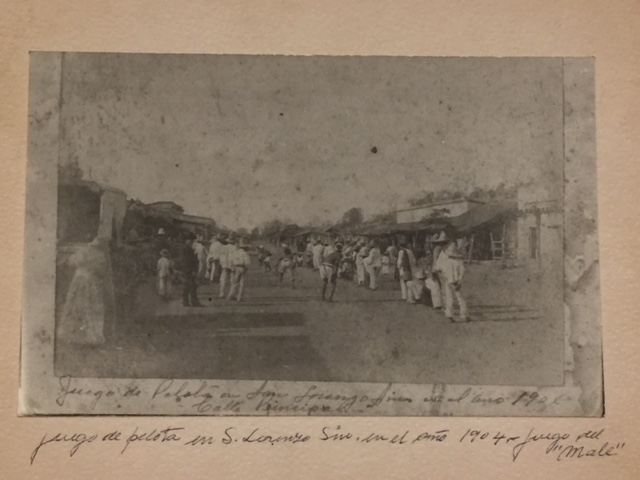 Juego de Pelota en San Lorenzo Sin. en el año 190
Calle Principal
juego de pelota en S. Lorenzo Sin. en el año 1904 - juego del
"Male"